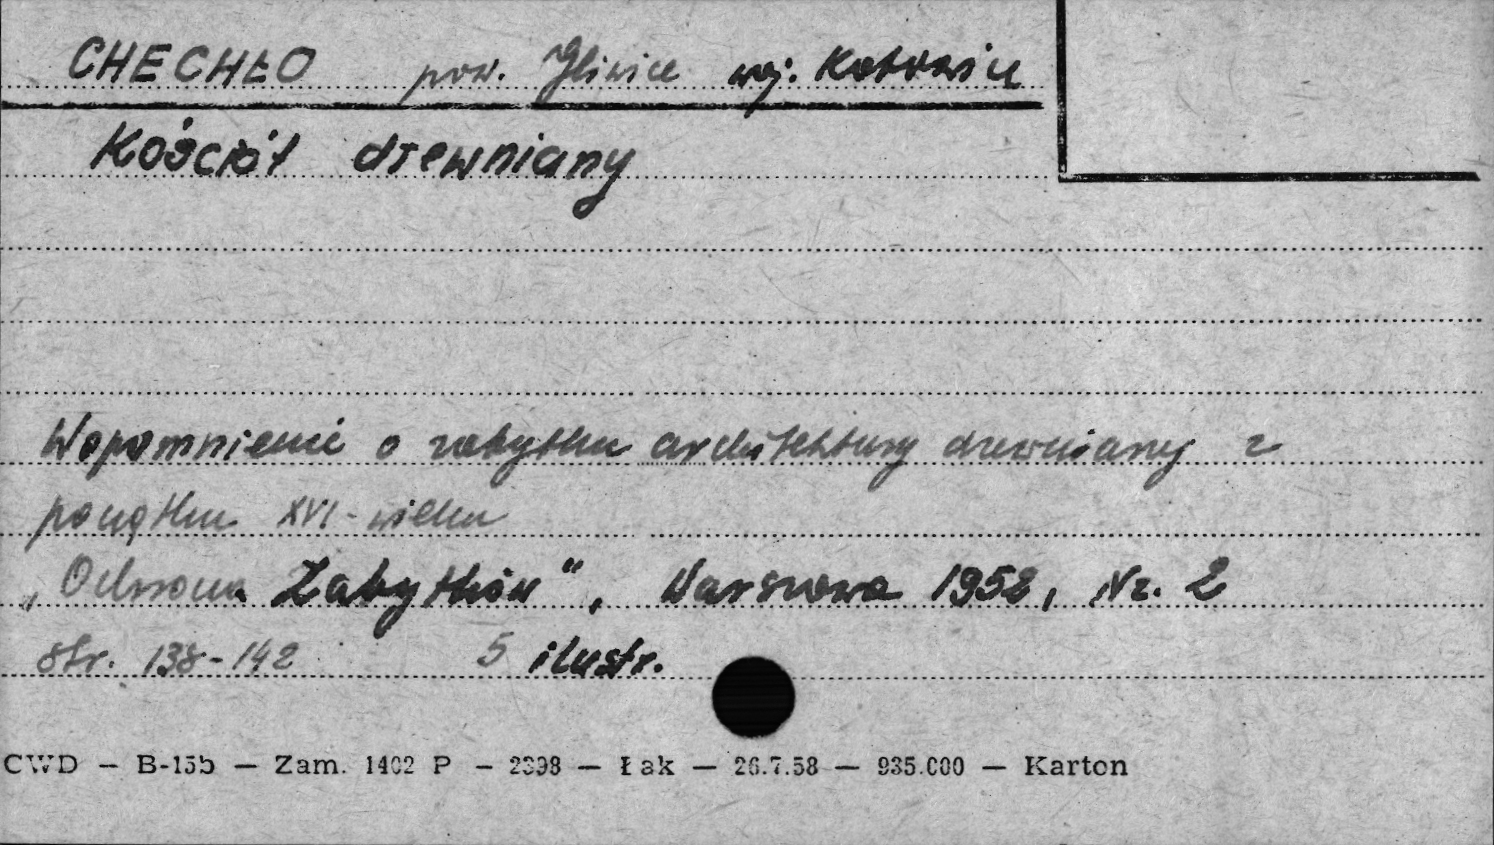 CHECHŁO pow. Gliwice woj. Katowice
Kościół drewniany
Wspomnienie o zabytku architektury drewnianej z
początku XVI-wieku
„Ochrona Zabytków", Warszawa 1952, Nr. 2
str. 138-142 5 ilustr.
CWD — B-15b — Zam. 1402 P — 2398 — Łak — 26.7.58 — 935.000 — Karton